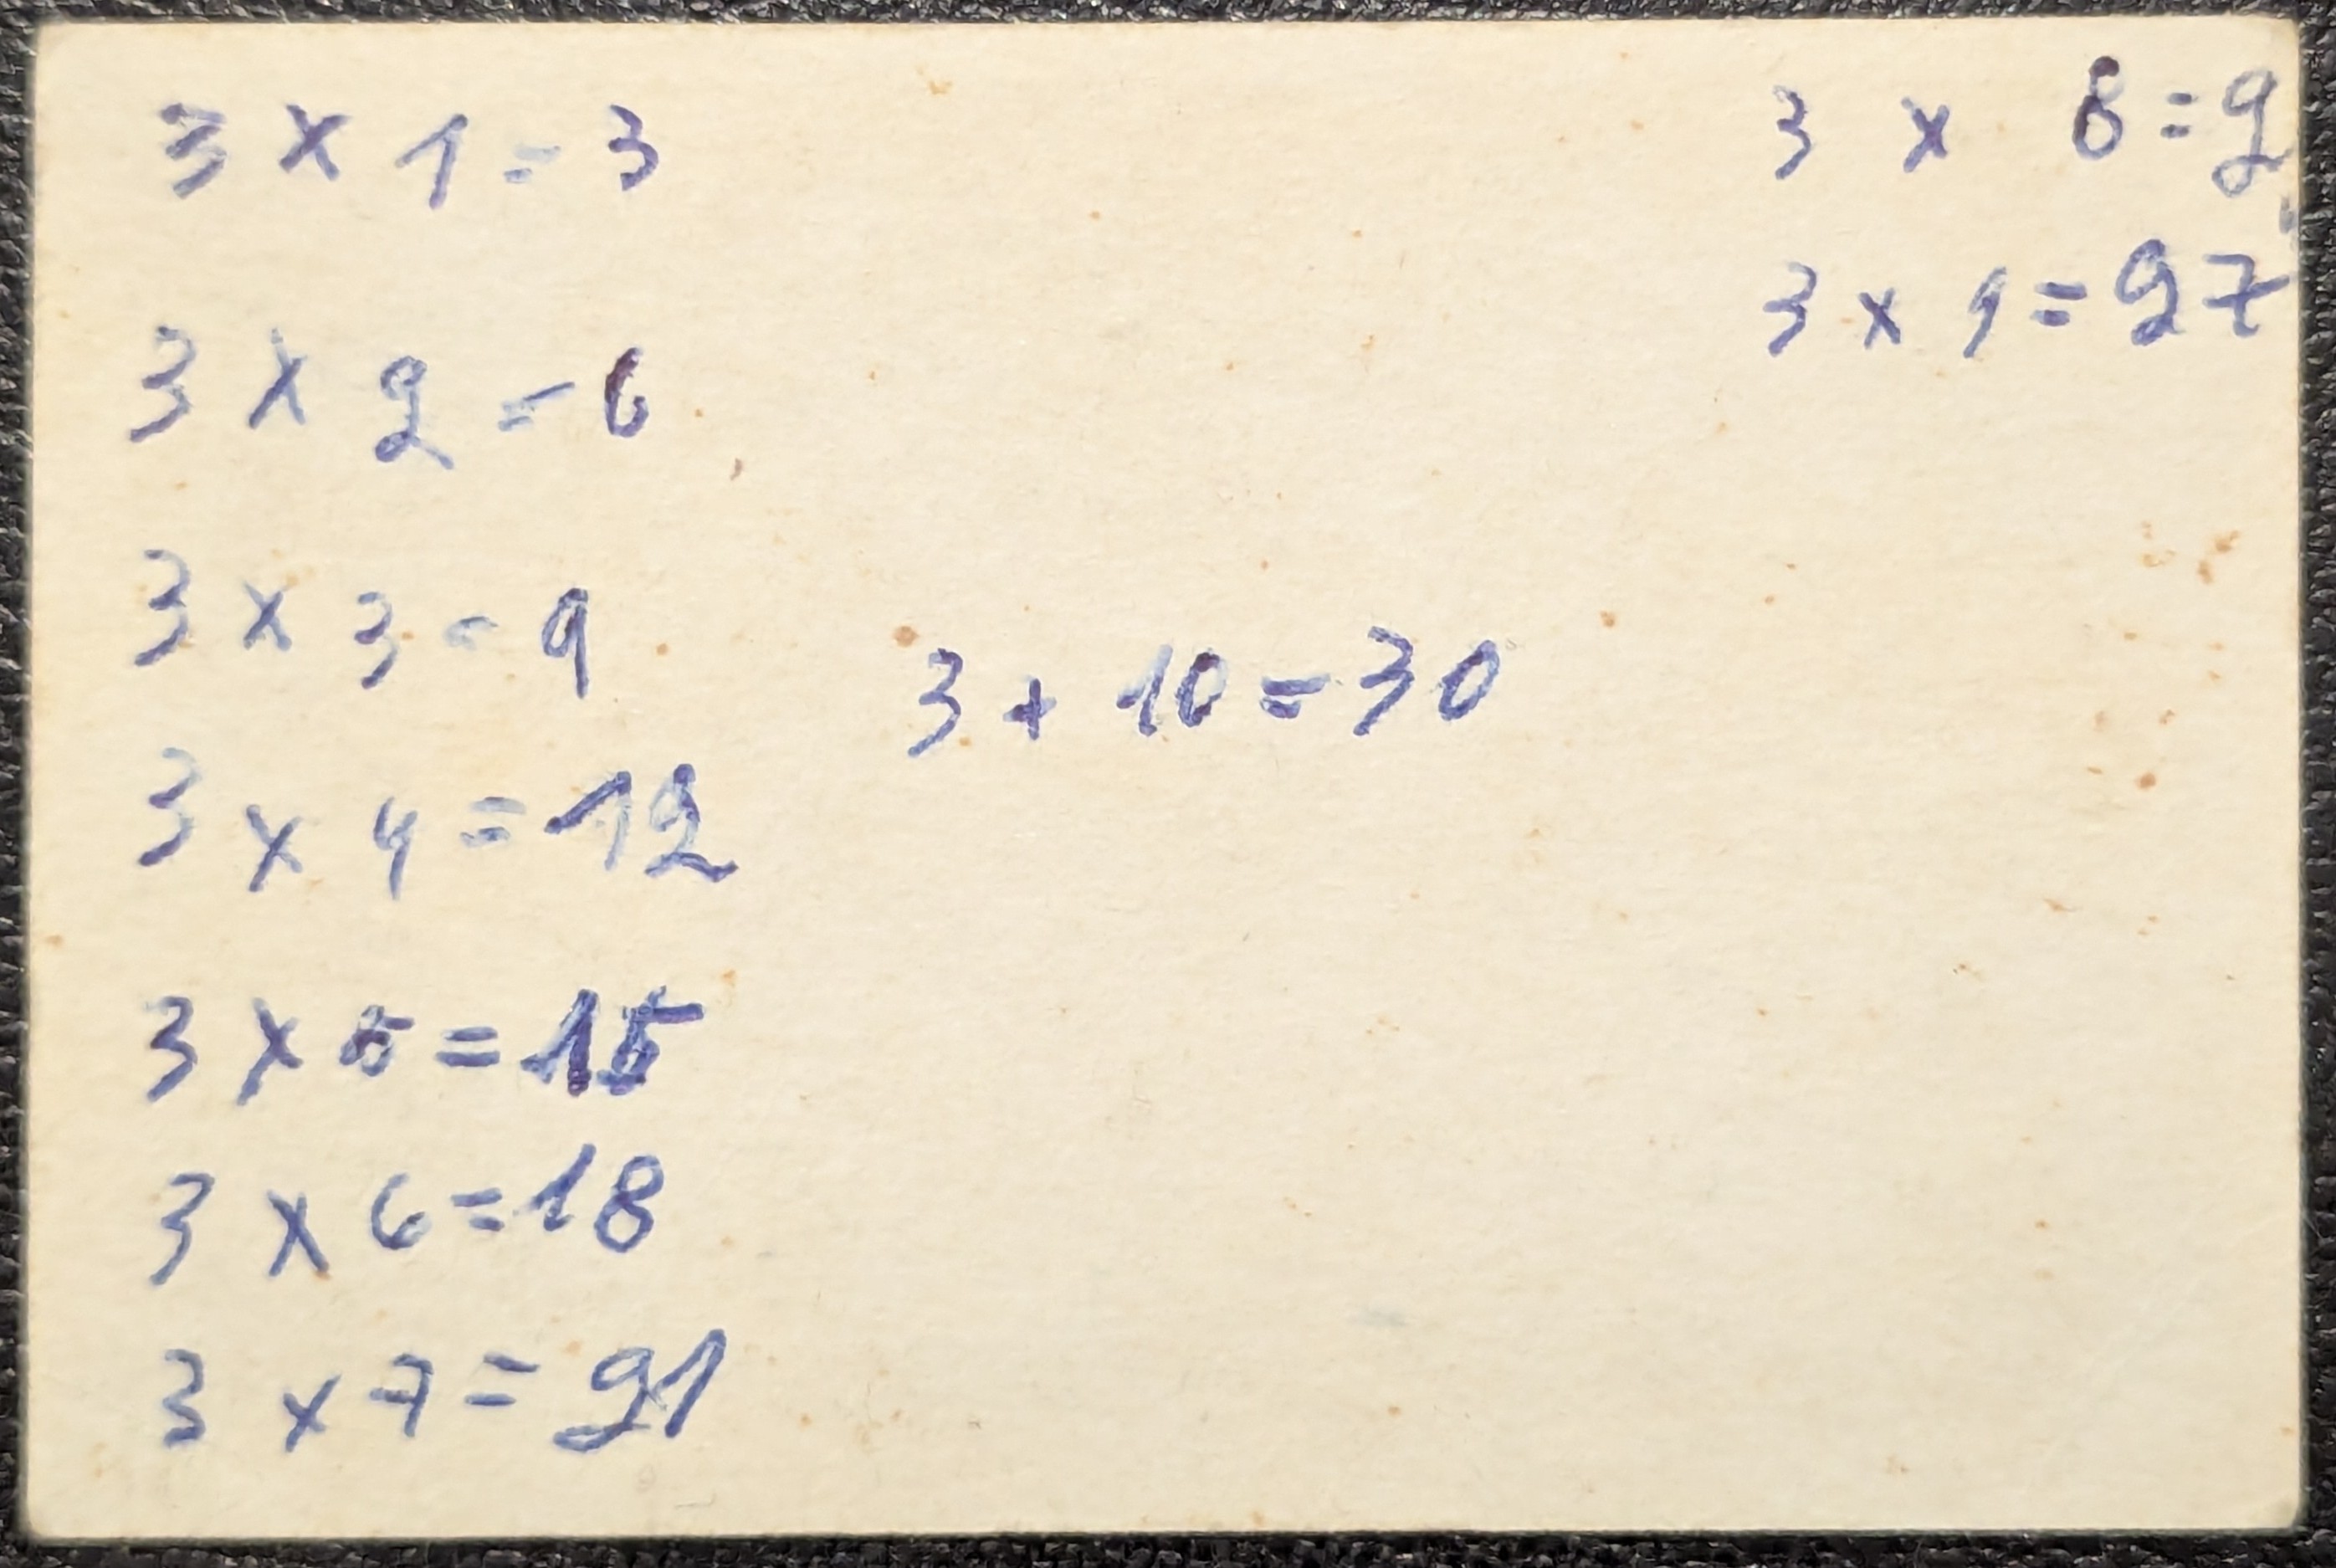 3 x 1 = 3
3 x 2 = 6
3 x 3 = 9
3 x 4 = 12
3 x 5 = 15
3 x 6 = 18
3 x 7 = 21
3 + 10 = 30
3 x 8 = 2
3 x 9 = 27